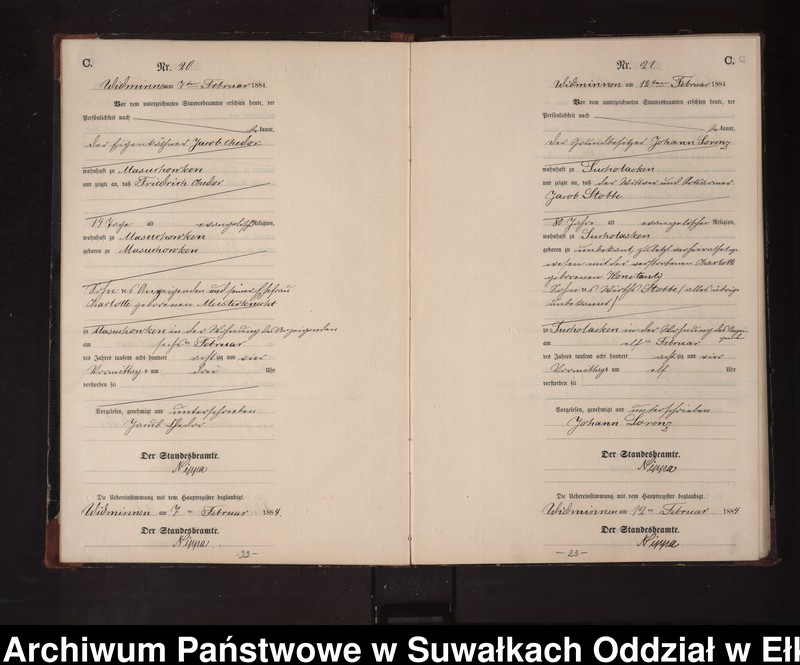 C.
Nr. 20
Widminnen am 7ten Februar 1884.
Vor dem unterzeichneten Standesbeamten erschien heute, der
Persönlichkeit nach
kannt,
der Eigenkäthner Jacob Chedor
wohnhaft zu Masuchowken
und zeigte an, daß Friedrich Chedor
19 Tage alt evangelischer Religion,
wohnhaft zu Masuchowken
geboren zu Masuchowken
Sohn des Anzeigenden und seiner Ehefrau
Charlotte geborenen Meisterknecht
zu Masuchowken in der Wohnung des Anzeigenden
am sechsten Februar
des Jahres tausend acht hundert achtzig und vier
Vormittags um drei Uhr
verstorben sei
Vorgelesen, genehmigt und unterschrieben
Jacub Chedor
Der Standesbeamte.
Nippa
Die Uebereinstimmung mit dem Hauptregister beglaubigt.
Widminnen am 7ten Februar 1884.
Der Standesbeamte.
Nippa
-22-
C.
Nr. 21
Widminnen am 12ten Februar 1884
Vor dem unterzeichneten Standesbeamten erschien heute, der
Persönlichkeit nach
kannt,
der Grundbesitzer Johann Lorenz
wohnhaft zu Sucholasken
und zeigte an, daß der Wittwer und Ortsarmer
Jacob Stobbe
80 Jahre alt evangelischer Religion,
wohnhaft zu Sucholasken
geboren zu unbekannt, zuletzt verheirathet ge-
wesen mit der verstorbenen Charlotte
geborenen Konstantz
Sohn des Wirths Stobbe (alles übrige
unbekannt)
zu Sucholasken in der Wohnung des Anzei-
genden
am elften Februar
des Jahres tausend acht hundert achtzig und vier
Vormittags um elf Uhr
verstorben sei
Vorgelesen, genehmigt und unterschrieben
Johann Lorenz
Der Standesbeamte.
Nippa
Die Uebereinstimmung mit dem Hauptregister beglaubigt.
Widminnen am 12ten Februar 1884
Der Standesbeamte.
Nippa
-23-
Archiwum Państwowe w Suwałkach Oddział w Ełk